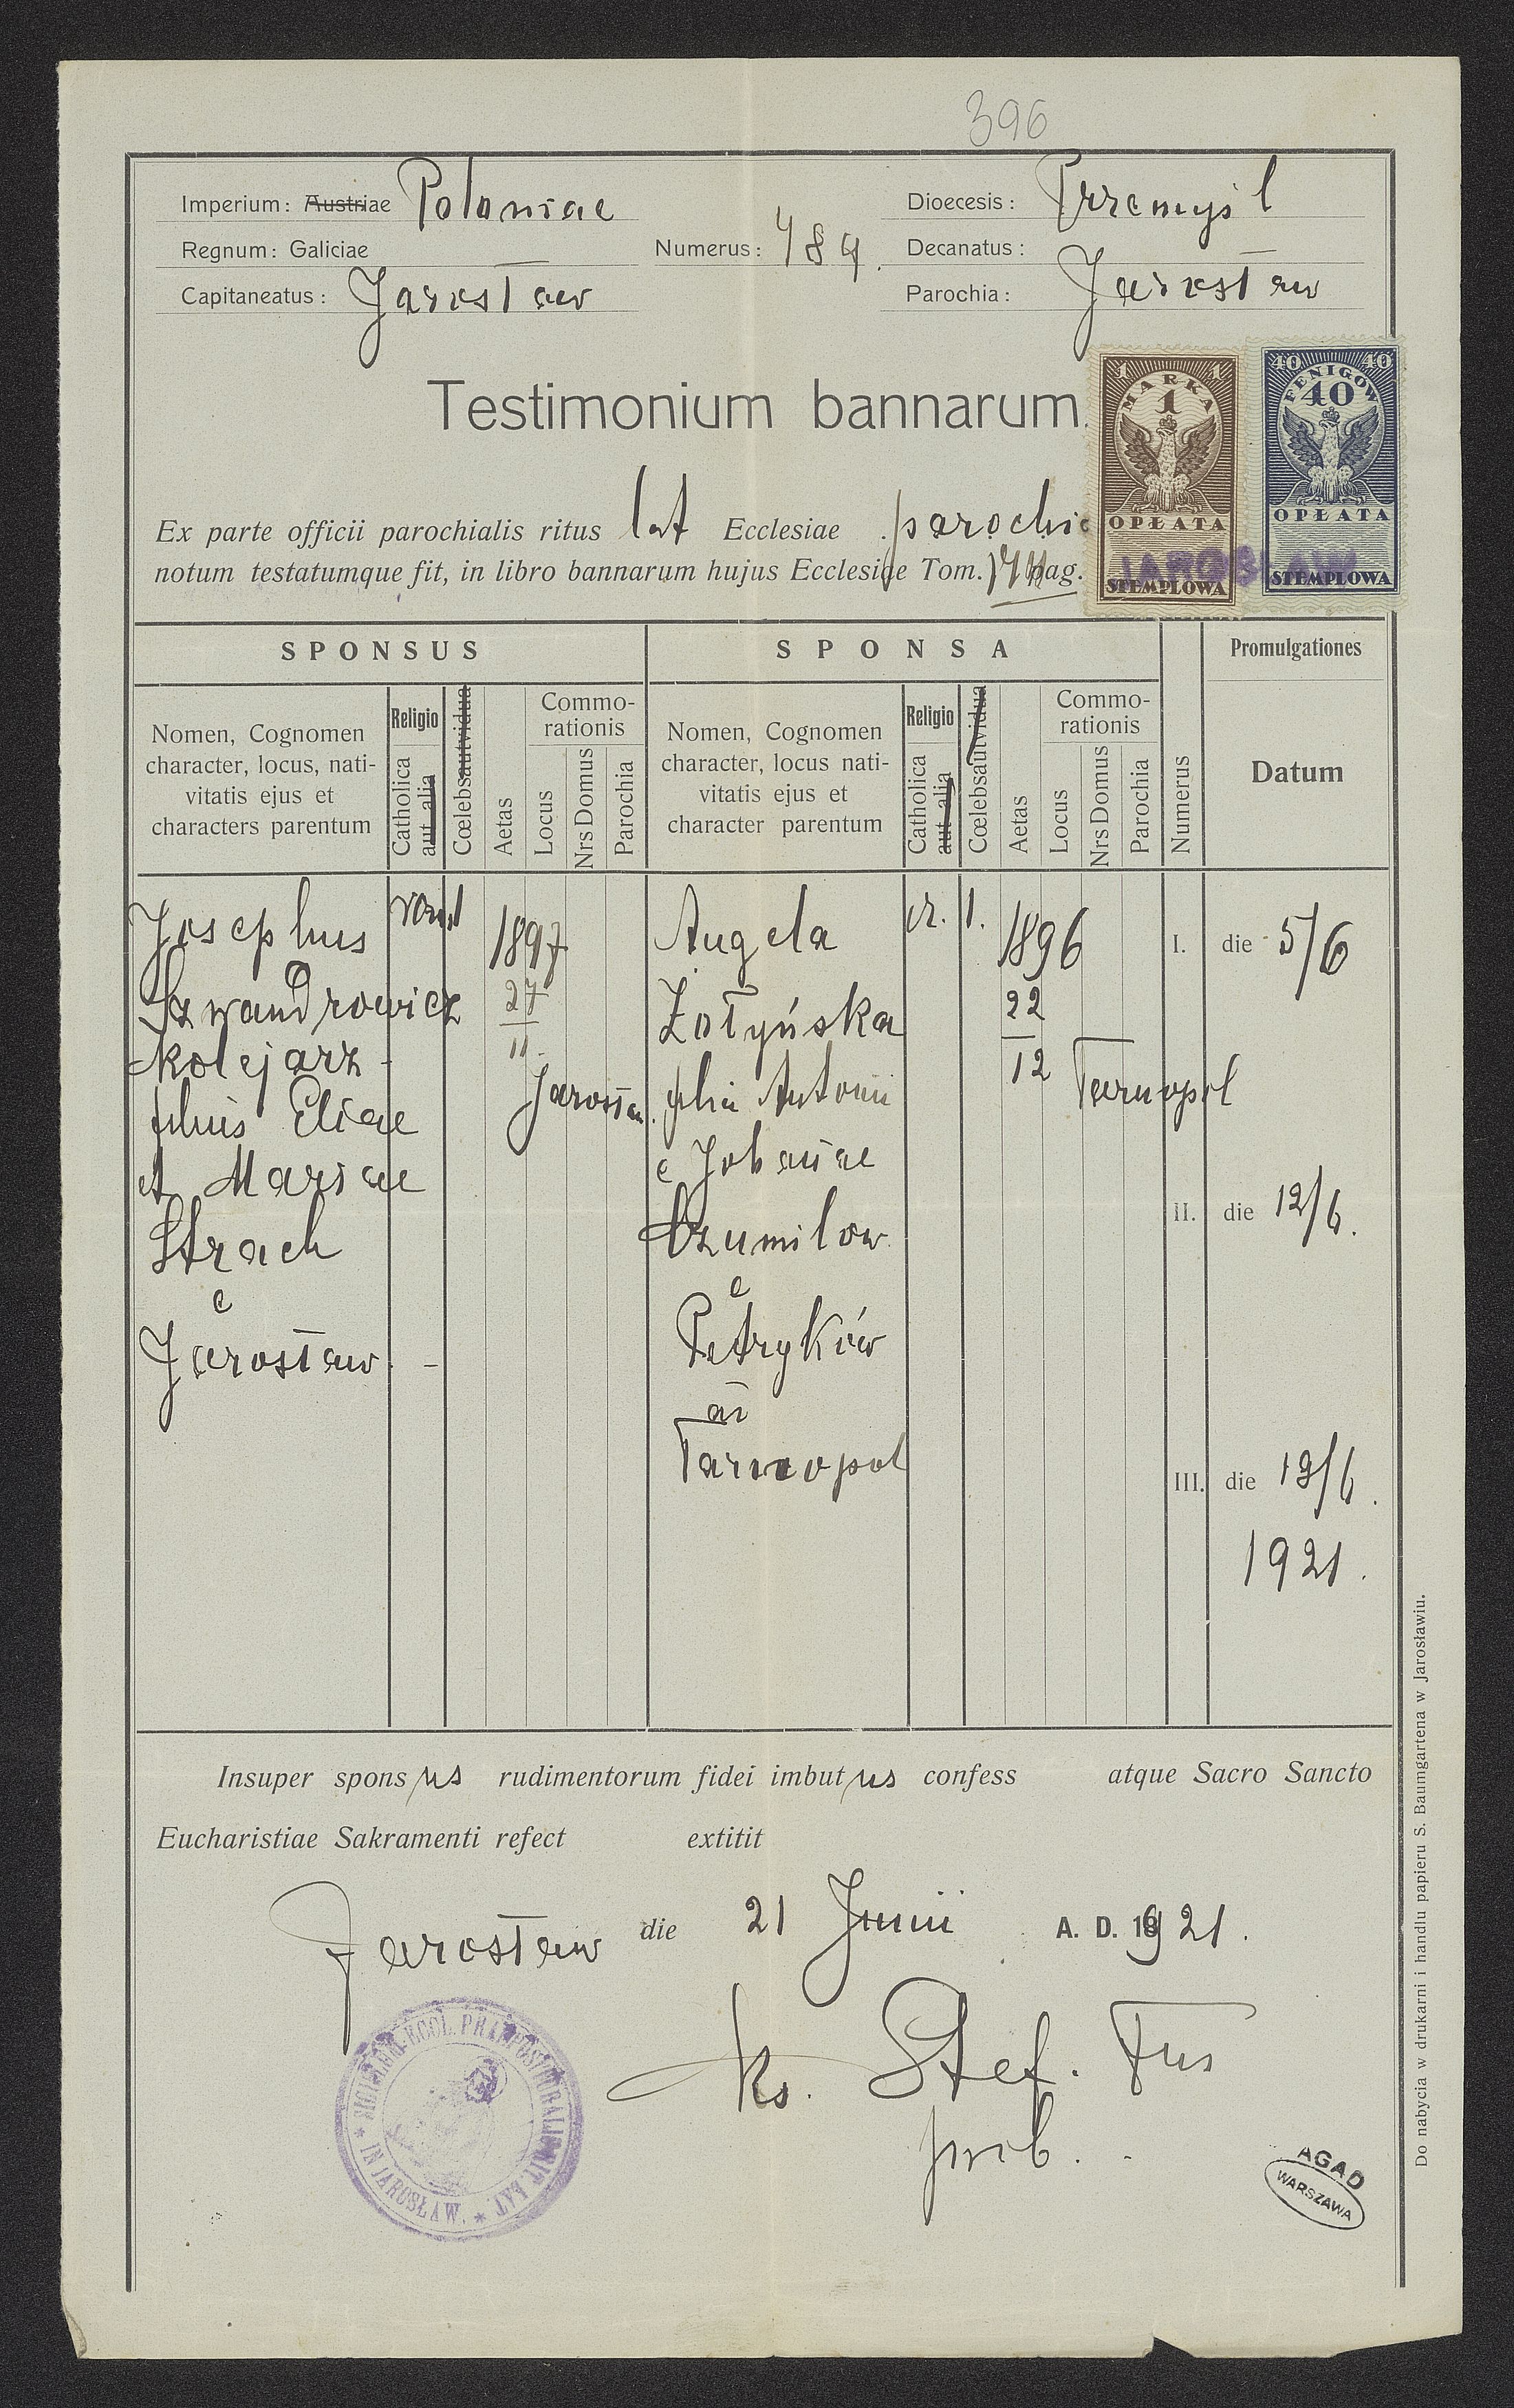 396
Imperium: Austriae Poloniae
Regnum: Galiciae
Capitaneatus: Jarosław
Numerus: 489.
Dioecesis: Przemyśl
Decanatus:
Parochia: Jarosław
Testimonium bannarum.
Ex parte officii parochialis ritus lat Ecclesiae parochia
notum testatumque fit, in libro bannarum hujus Ecclesiae Tom. pag.
1 1
MARKA
1
OPŁATA
STEMPLOWA
40 40
FENIGÓW
40
OPŁATA
STEMPLOWA
JAROSŁAW
SPONSUS
SPONSA
Promulgationes
Nomen, Cognomen
character, locus, nati-
vitatis ejus et
characters parentum
Religio
Catholica
aut alia
Cœlebs aut vidua
Aetas
Commo-
rationis
Locus
Nrs Domus
Parochia
Nomen, Cognomen
character, locus nati-
vitatis ejus et
character parentum
Religio
Catholica
aut alia
Cœlebs aut vidua
Aetas
Commo-
rationis
Locus
Nrs Domus
Parochia
Numerus
Datum
Josephus
Szwandrowicz
kolejarz -
filius Eliae
et Mariae
Strach
e
Jarosław. -
1897
27
11.
Jarosław.
Angela
Żołyńska
filia Antonii
e Johannae
Czumilow
e
Petryków
ai
Tarnopol
cr. 1.
1896
22
12
Tarnopol
I. die 5/6
II. die 12/6.
III. die 19/6.
1921.
Insuper sponsus rudimentorum fidei imbutus confess atque Sacro Sancto
Eucharistiae Sakramenti refect extitit
Jarosław die 21 Junii A. D. 1921.
ks. Stef. Fus
prob.
SIGILLUM ECCL. PRAEPOSITURALIS RIT. LAT.
* IN JAROSŁAW. *
AGAD
WARSZAWA
Do nabycia w drukarni i handlu papieru S. Baumgartena w Jarosławiu.